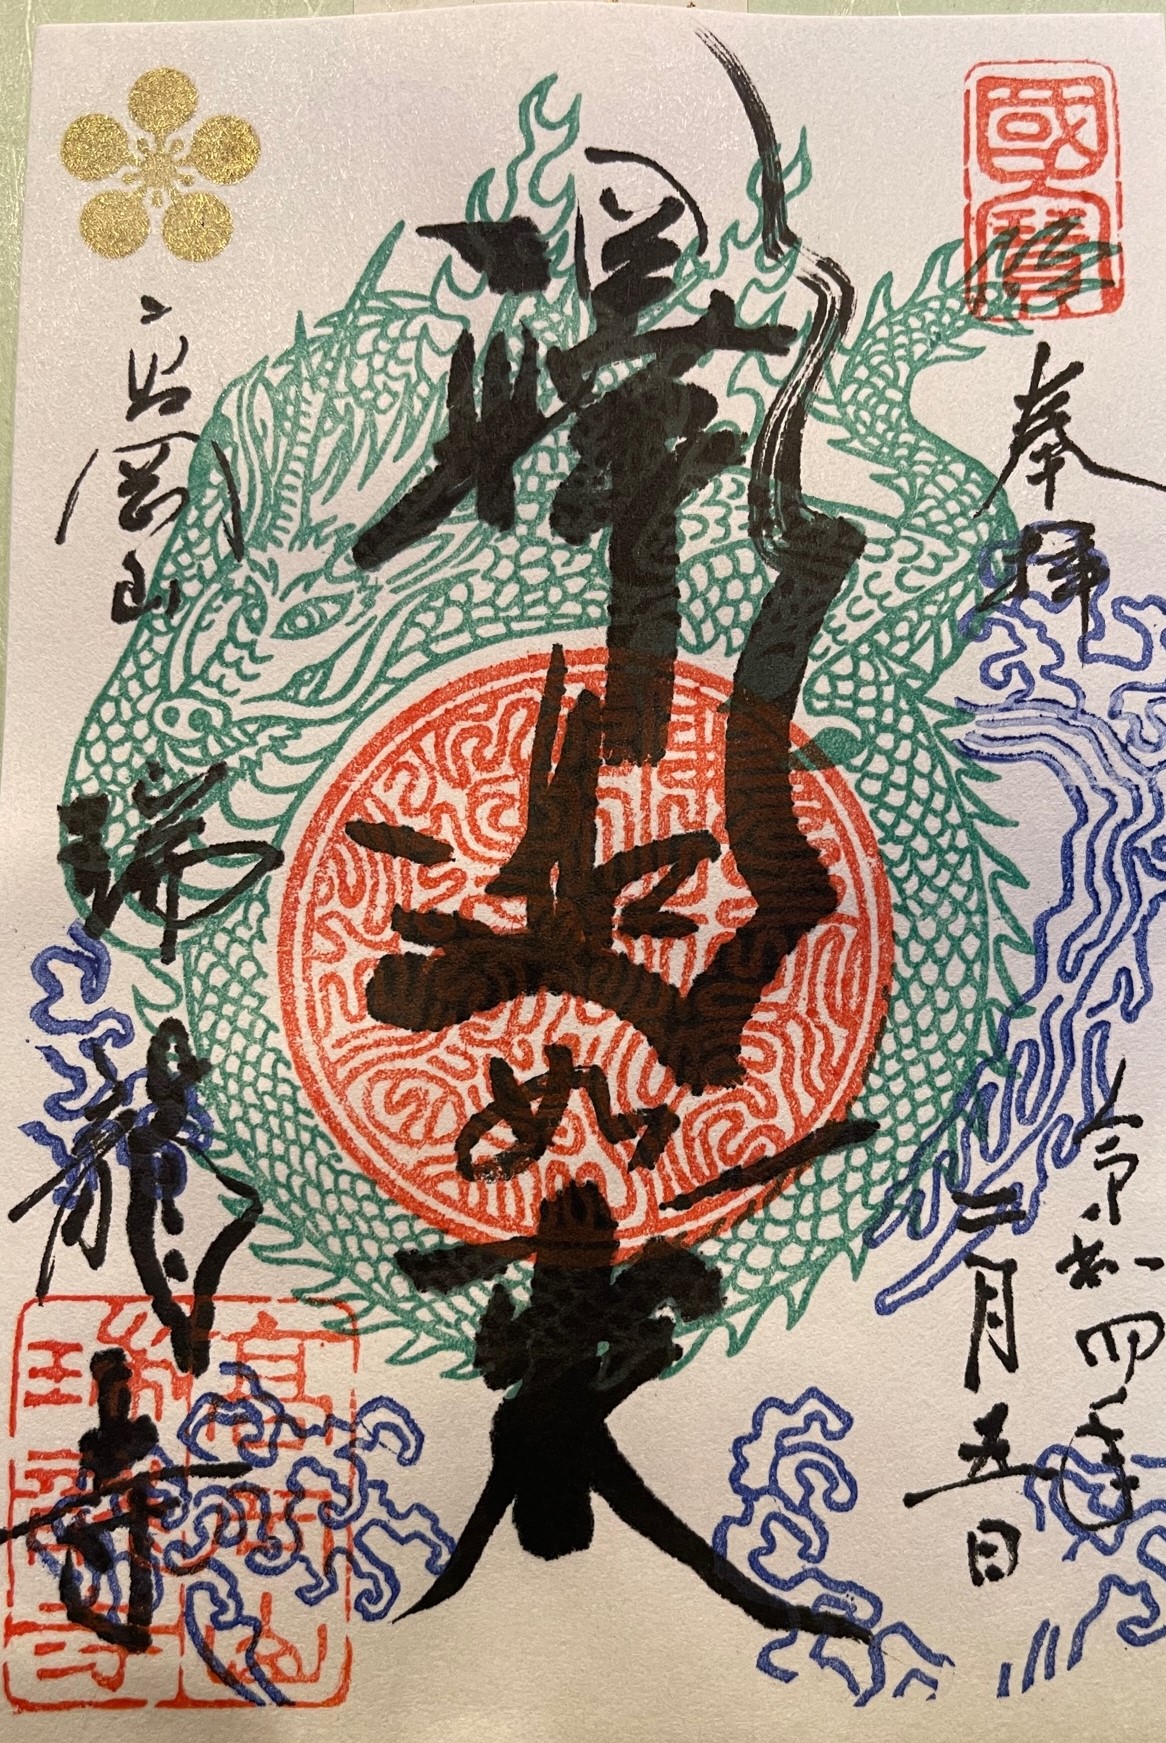 國寶
奉拝
令和四年
二月五日
釋迦如来
高岡山
瑞龍寺
高岡山
瑞龍寺